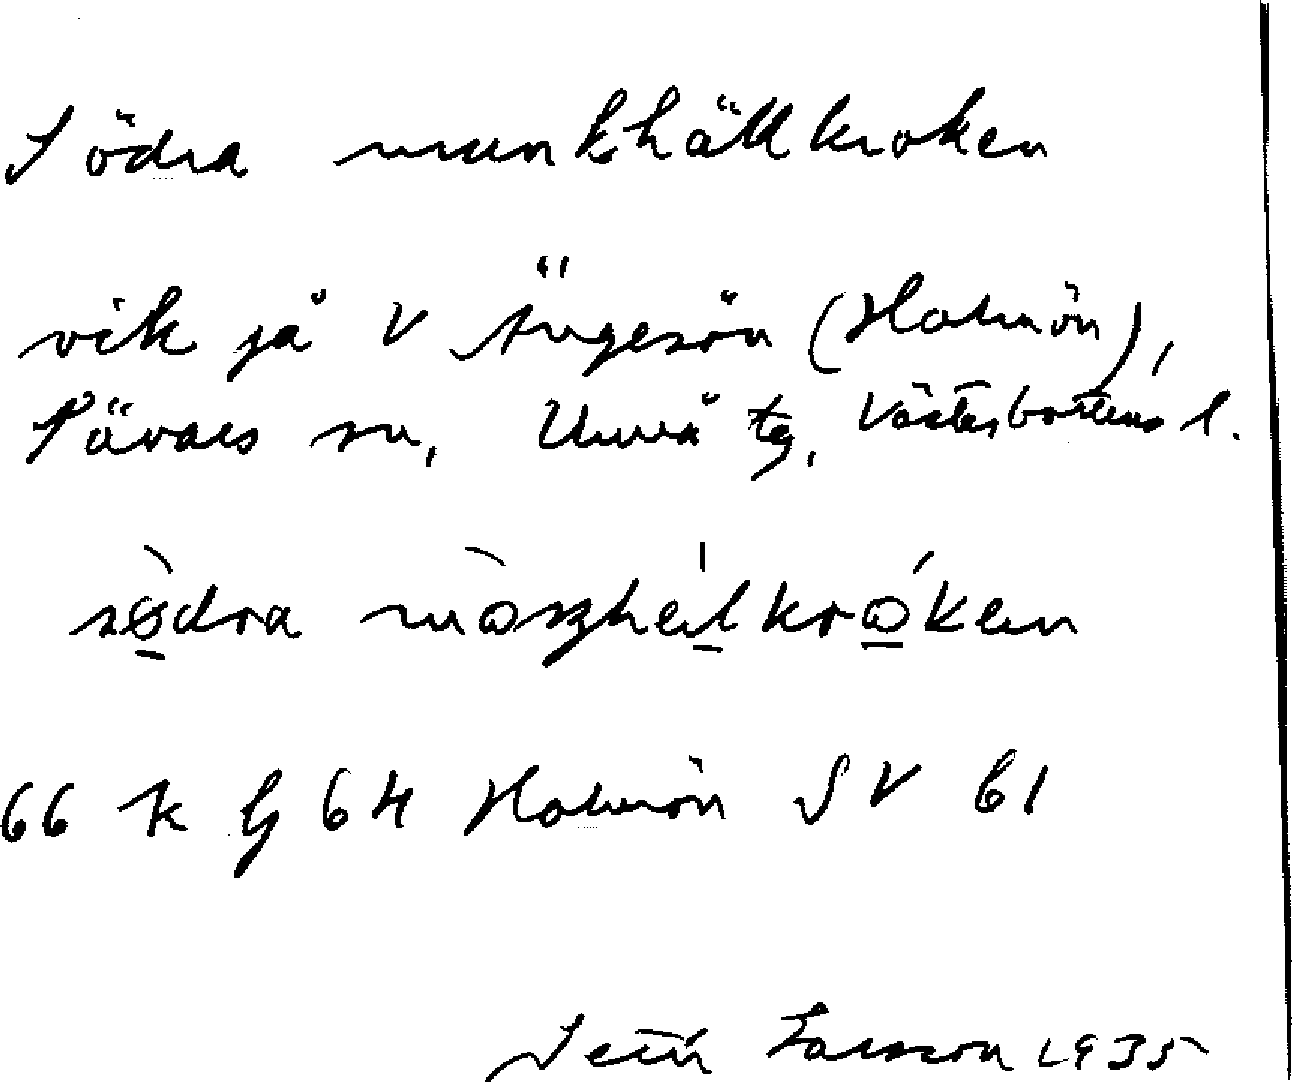 Södra munkhällkroken
vik på V Ängesön (Holmön),
Sävars sn, Umeå tg, Västerbottens l.
66 K G 64 Holmön SV 61
Larsson 1935